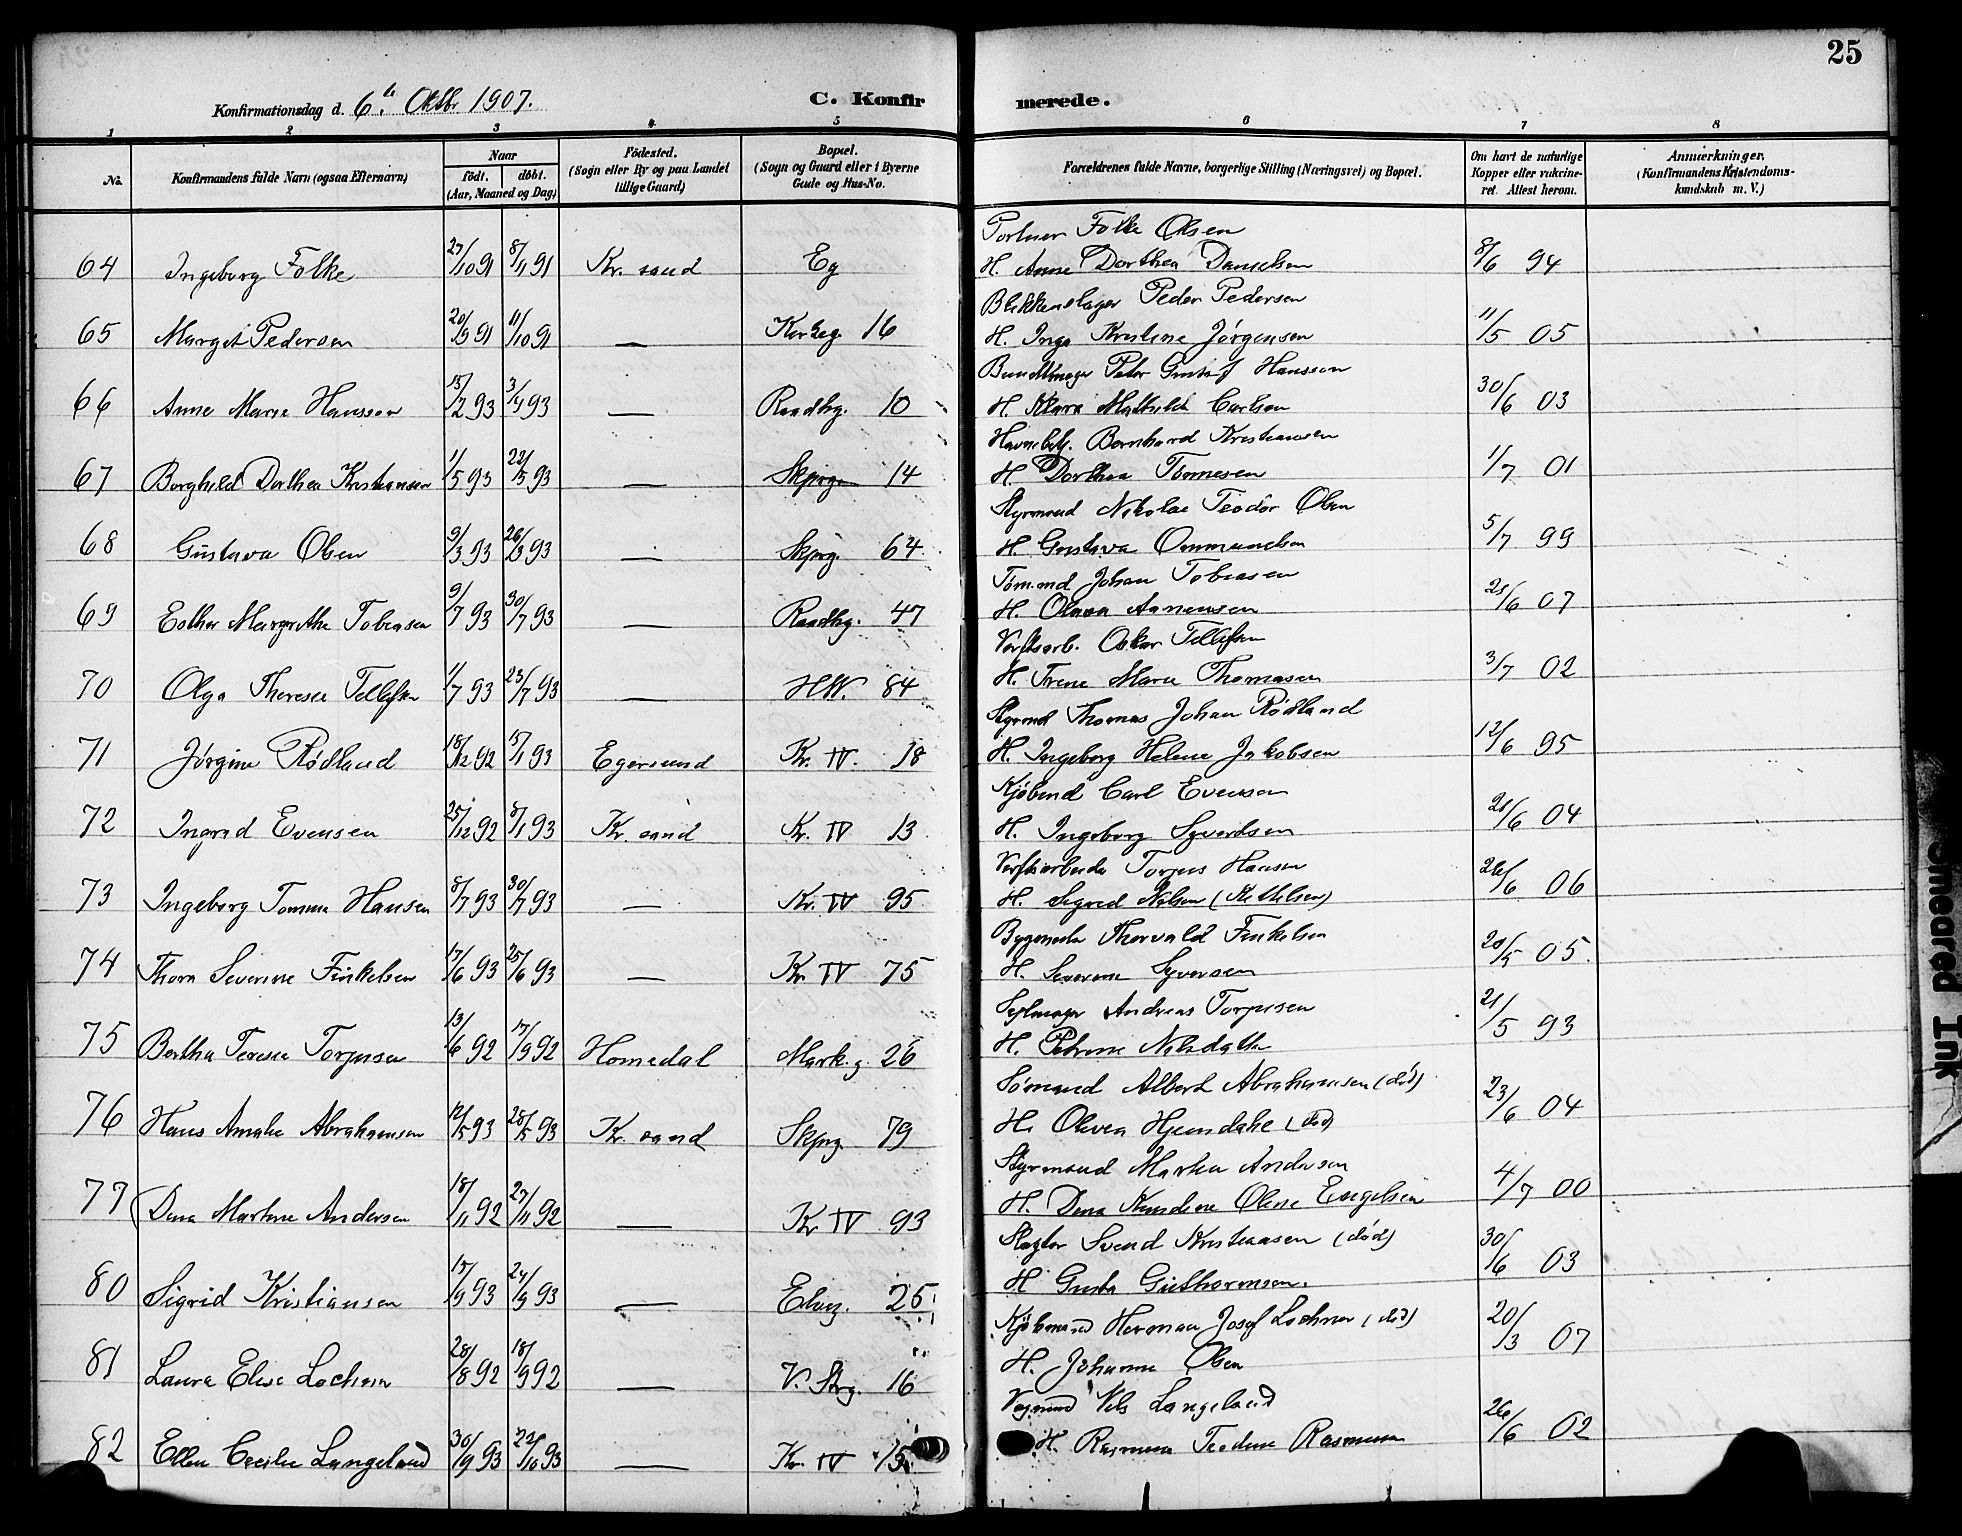 25
Konfirmationsdag d. 6te Oktbr 1907.
C. Konfirmerede.
1 2 3 4 5 6 7 8
No. Konfirmandens fulde Navn (ogsaa Efternavn) Naar født. døbt. (Aar, Maaned og Dag) Fødested. (Sogn eller By og paa Landet tillige Gaard) Bopæl. (Sogn og Gaard eller i Byerne Gade og Hus-No. Forældrenes fulde Navne, borgerlige Stilling (Næringsvei) og Bopæl. Om havt de naturlige Kopper eller vakcineret. Attest herom. Anmerkninger. (Konfirmandens Kristendomskundskab m. V.)
Portner Folke Olsen
64 Ingeborg Folke 27/10 91 8/11 91 Kr. sand Eg H. Anne Dorthea Danielsen 8/6 94
Blikkenslager Peder Pedersen
65 Margit Pedersen 20/9 91 11/10 91 — Kirkeg. 16 H. Inga Kristine Jørgensen 11/5 05
Buntmager Peter Gustaf Hansson
66 Anne Marie Hansson 15/2 93 3/4 93 — Raadhg. 10 H. Klara Mathilde Carlsen 30/6 03
Havnebetj. Bernhard Kristiansen
67 Borghild Dorthea Kristiansen 1/5 93 22/5 93 — Skipsg. 14 H. Dorthea Tønnesen 1/7 01
Styrmand Nikolai Teodor Olsen
68 Gustava Olsen 9/3 93 26/3 93 — Skipsg. 64 H. Gustava Ommundsen 5/7 99
Tømmd. Johan Tobiasen
69 Esther Margrethe Tobiasen 9/7 93 30/7 93 — Raadhg. 47 H. Olava Aanensen 25/6 07
Verftsarb. Oskar Tellefsen
70 Olga Therese Tellefsen 1/7 93 23/7 93 — H.W. 84 H. Trine Marie Thomasen 3/7 02
Styrmd Thomas Johan Rødland
71 Jørgine Rødland 18/12 92 15/1 93 Egersund Kr. IV. 18 H. Ingeborg Helene Jakobsen 12/6 95
Kjøbmd Carl Evensen
72 Ingrid Evensen 25/12 92 8/1 93 Kr. sand Kr. IV 13 H. Ingeborg Syvertsen 21/6 04
Verftsarbeider Torjus Hansen
73 Ingeborg Tomine Hansen 8/7 93 30/7 93 — Kr. IV 95 H. Sigrid Nilsen (Kittilsen) 26/6 06
Bygmester Thorvald Finkelsen
74 Thora Severine Finkelsen 17/6 93 25/6 93 — Kr. IV 75 H. Severine Syversen 20/5 05.
Seilmager Andreas Torjusen
75 Bertha Terese Torjusen 13/6 92 17/9 92 Homedal Mark.g. 26 H. Petrine Nilsdatter 21/5 93
Sømand Albert Abrahamsen (død)
76 Hans Amalie Abrahamsen 12/5 93 28/5 93 Kr. sand Skipsg. 79 H. Olevea (død) 23/6 04
Styrmand Martin Andersen
77 Dina Martine Andersen 18/11 92 27/11 92 — Kr IV 93 H. Dina Olene Engelsen 4/7 00
Slagter Svend Kristiansen (død)
80 Sigrid Kristiansen 17/9 93 24/9 93 — Elveg. 25 H Gusta Guthormsen. 30/6 03
Kjøbmand Herman Josef Lochner (død)
81 Laura Elise Lochner 28/8 92 18/9 92 — V. Strg. 16 H. Johanne Olsen 20/3 07
Vognmd Nils Langeland
82 Ellen Cecilie Langeland 30/9 93 22/10 93 — Kr. IV 15 H. Rasmine Teodine Rasmussen 26/6 02
Smeared Ink